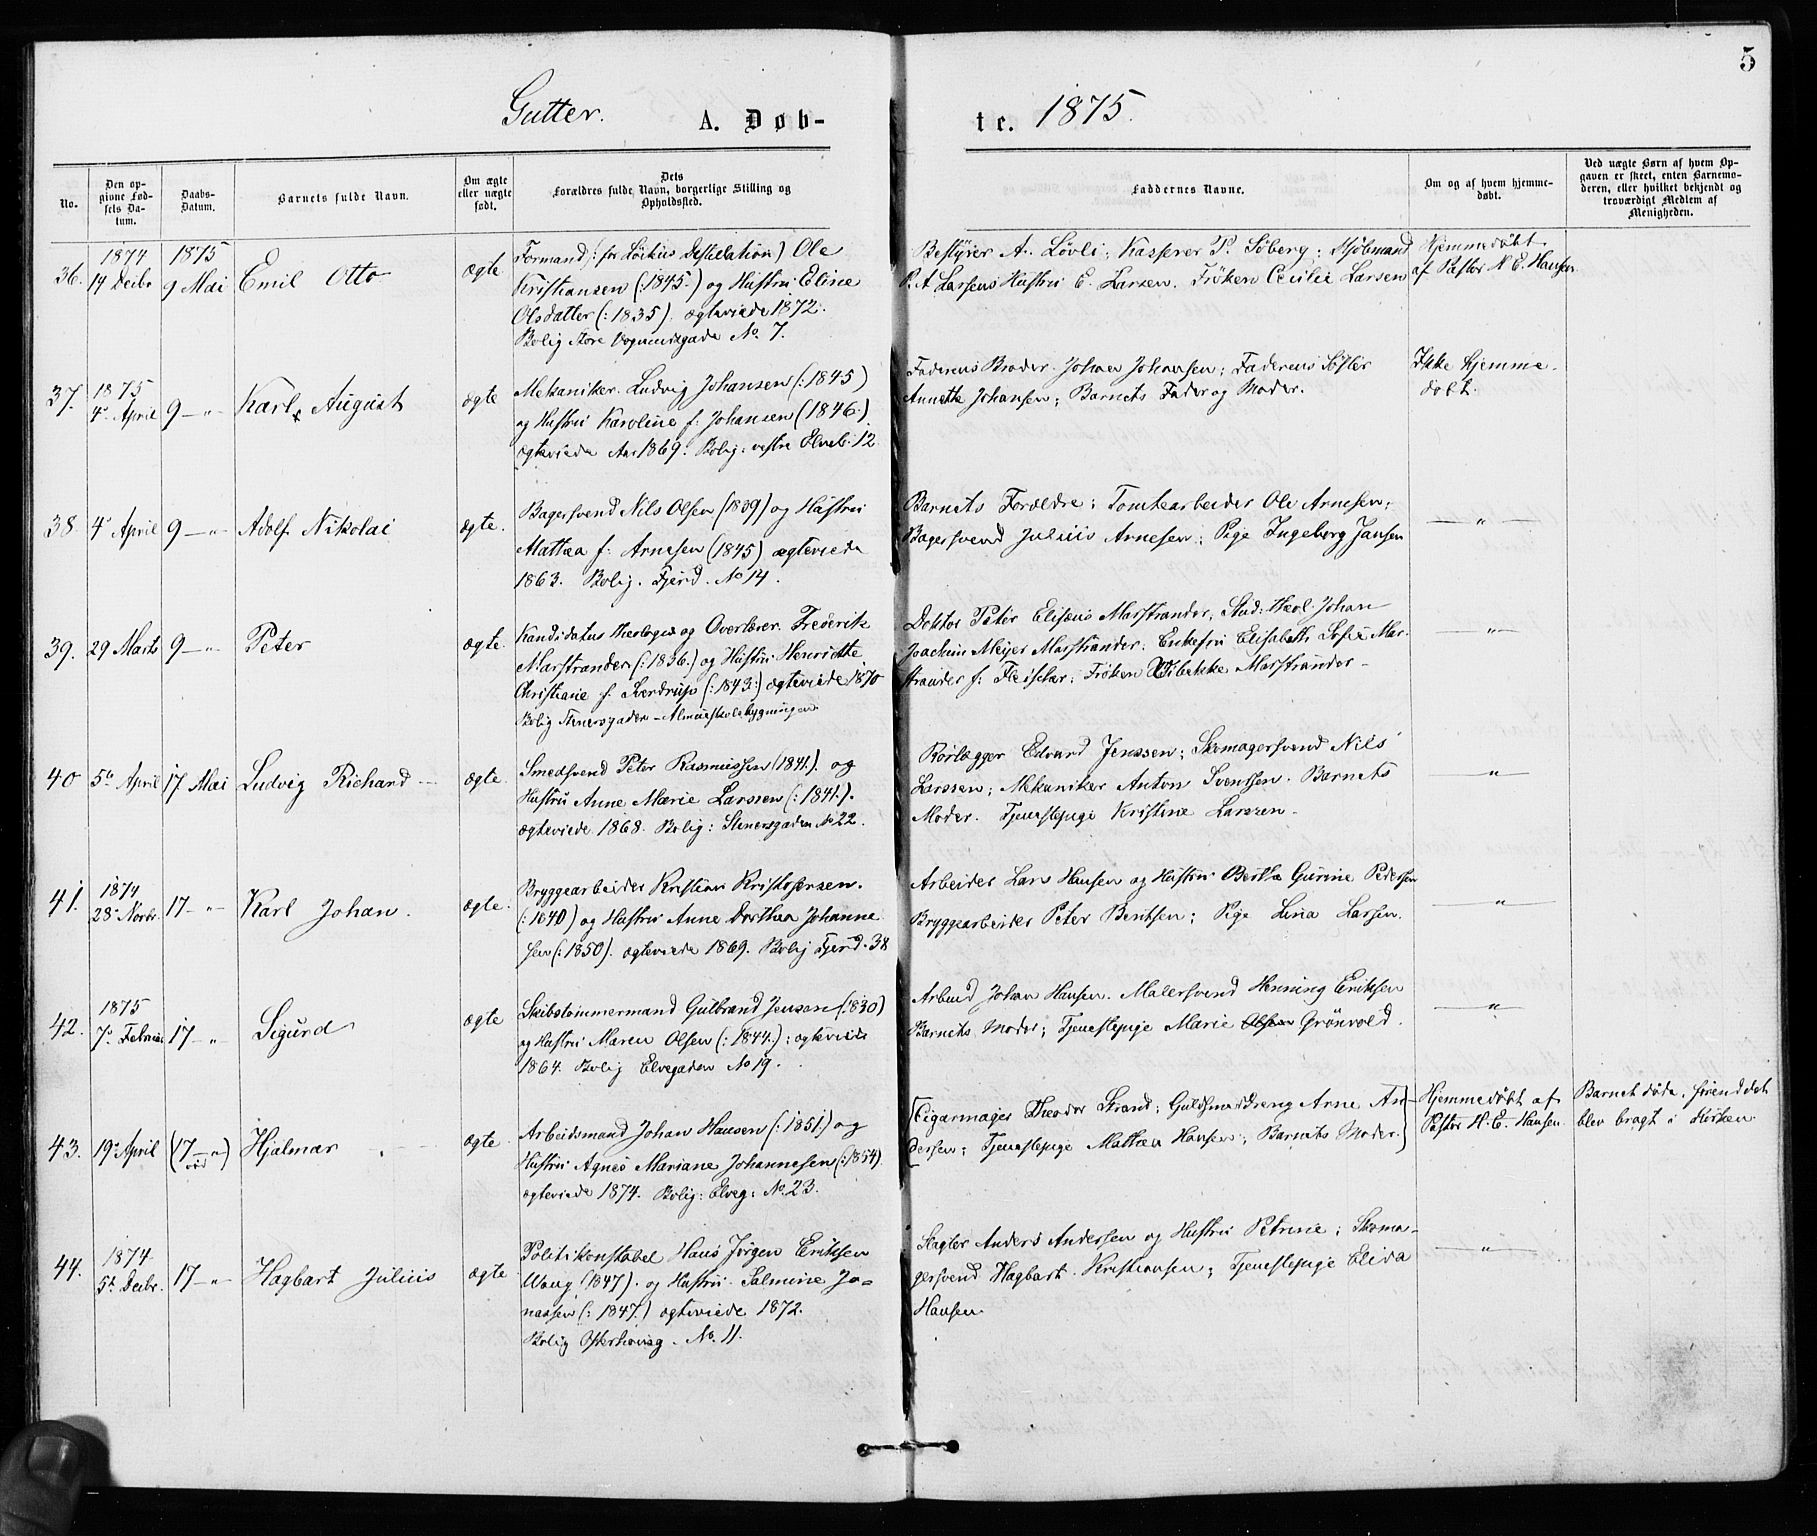 5
Gutter. A. Døb- te. 1875.
No.
Den opgivne Fødsels Datum.
Daabs-Datum.
Barnets fulde Navn.
Om ægte eller uægte født.
Dets Forældres fulde Navn, borgerlige Stilling og Opholdssted.
Faddernes Navne.
Om og af hvem hjemmedøbt.
Ved uægte Børn af hvem Opgaven er skeet, enten Barnemoderen, eller hvilket bekjendt og troværdigt Medlem af Menigheden.
36. 1874 14 Decbr 1875 9 Mai Emil Otto ægte
Formand (: for Destilation) Ole
Kristiansen (: 1845.) og Hustru Eline
Olsdatter (: 1835). ægteviede 1872.
Bolig Store Vognmandsgade No. 7.
Bestyrer A. Løvli; Kasserer P. Søberg; Sjøbmand
P. A Larsens Hustru E. Larsen. Frøken Cecilie Larsen
Hjemmedøbt
af Pastor N. E. Hansen
37. 1875 4de April 9 —"— Karl August ægte
Mekaniker Ludvig Johansen (: 1845)
og Hustru Karoline f: Johansen (1846.)
ægteviede Aar 1869. Bolig: vestre Elveb: 12
Faderens Broder Johan Johansen; Faderens Søster
Annette Johansen; Barnets Fader og Moder.
Ikke hjemme-
døbt.
38 4de April 9 —"— Adolf Nikolai ægte.
Bagersvend Nils Olsen (1839) og Hustru
Mathea f: Arnesen (1845) ægteviede
1863. Bolig. Fjerd. No 14.
Barnets Forældre; Tomtearbeider Ole Arnesen;
Bagersvend Julius Arnesen; Pige Ingeborg Jansen
— " —
39. 29 Marts 9 —"— Peter ægte.
Kandidatus theologiæ og Overlærer Frederik
Marstrander (: 1836.) og Hustru Henriette
Christiane f. Sverdrup (: 1843:) ægteviede 1870
Bolig Stenersgaden - Almueskolebygningen
Doktor Peter Elisæus Marstrander; Stud: theol. Johan
Joachim Meijer Marstrander; Enkefru Elisabeth Sofie Mar-
strander f: Fleischer; Frøken Wibekke Marstrander -
— " —
40 5te April 17. Mai Ludvig Richard - ægte
Smedsvend Peter Rasmussen (1841.). og
Hustru Anne Marie Larssen (: 1841.).
ægteviede 1868. Bolig: Stenersgaden No 22.
Rørlægger Edvard Jenssen; Skomagersvend Nils
Larssen; Mekaniker Anton Svenssen. Barnets
Moder. Tjenestepige Kristine Larssen.
— " —
41. 1874 28de Novbr. 17 —"— Karl Johan. ægte.
Bryggearbeider Kristian Kristofersen.
(: 1840) og Hustru Anne Dorthea Johanne-
sen (: 1850). ægteviede 1869. Bolig Fjerd. 38
Arbeider Lars Hansen og Hustru Bertha Gurine Pedersen
Bryggearbeider Peter Berntsen; Pige Lina Larsen.
— " —
42. 1875 7de Februar 17 —"— Sigurd ægte
Skibstømmermand Gulbrand Jensen (: 1830)
og Hustru Maren Olsen (: 1844.); ægteviede
1864. Bolig Elvegaden No 19.
Arbmd Johan Hansen. Malersvend Henning Eriksen
Barnets Moder; Tjenestepige Marie Olsen Grønvold.
— " —
43. 19de April (17 —"—) Hjalmar ægte
Arbeidsmand Johan Hansen (: 1851.) og
Hustru Agnes Mariane Johannesen (: 1854)
ægteviede 1874. Bolig: Elveg: No. 23.
(Cigarmager Theodor Strand; Guldsmeddreng Arne An-
dersen; Tjenestepige Mathea Hansen; Barnets Moder.)
Hjemmedøbt af
Pastor N. E. Hansen.
Barnet døde, førend det
blev bragt i Kirken
44. 1874 5te Decbr. 17 —"— Hagbart Julius ægte
Politikonstabel Hans Jørgen Eriksen
Waag (1847). og Hustru Salmine Jo-
nassen (: 1847.) ægteviede 1872.
Bolig Osterhausg. No. 11.
Slagter Anders Andersen og Hustru Petrine; Skoma-
gersvend Hagbart Kristiansen; Tjenestepige Elida
Hansen.
— " —